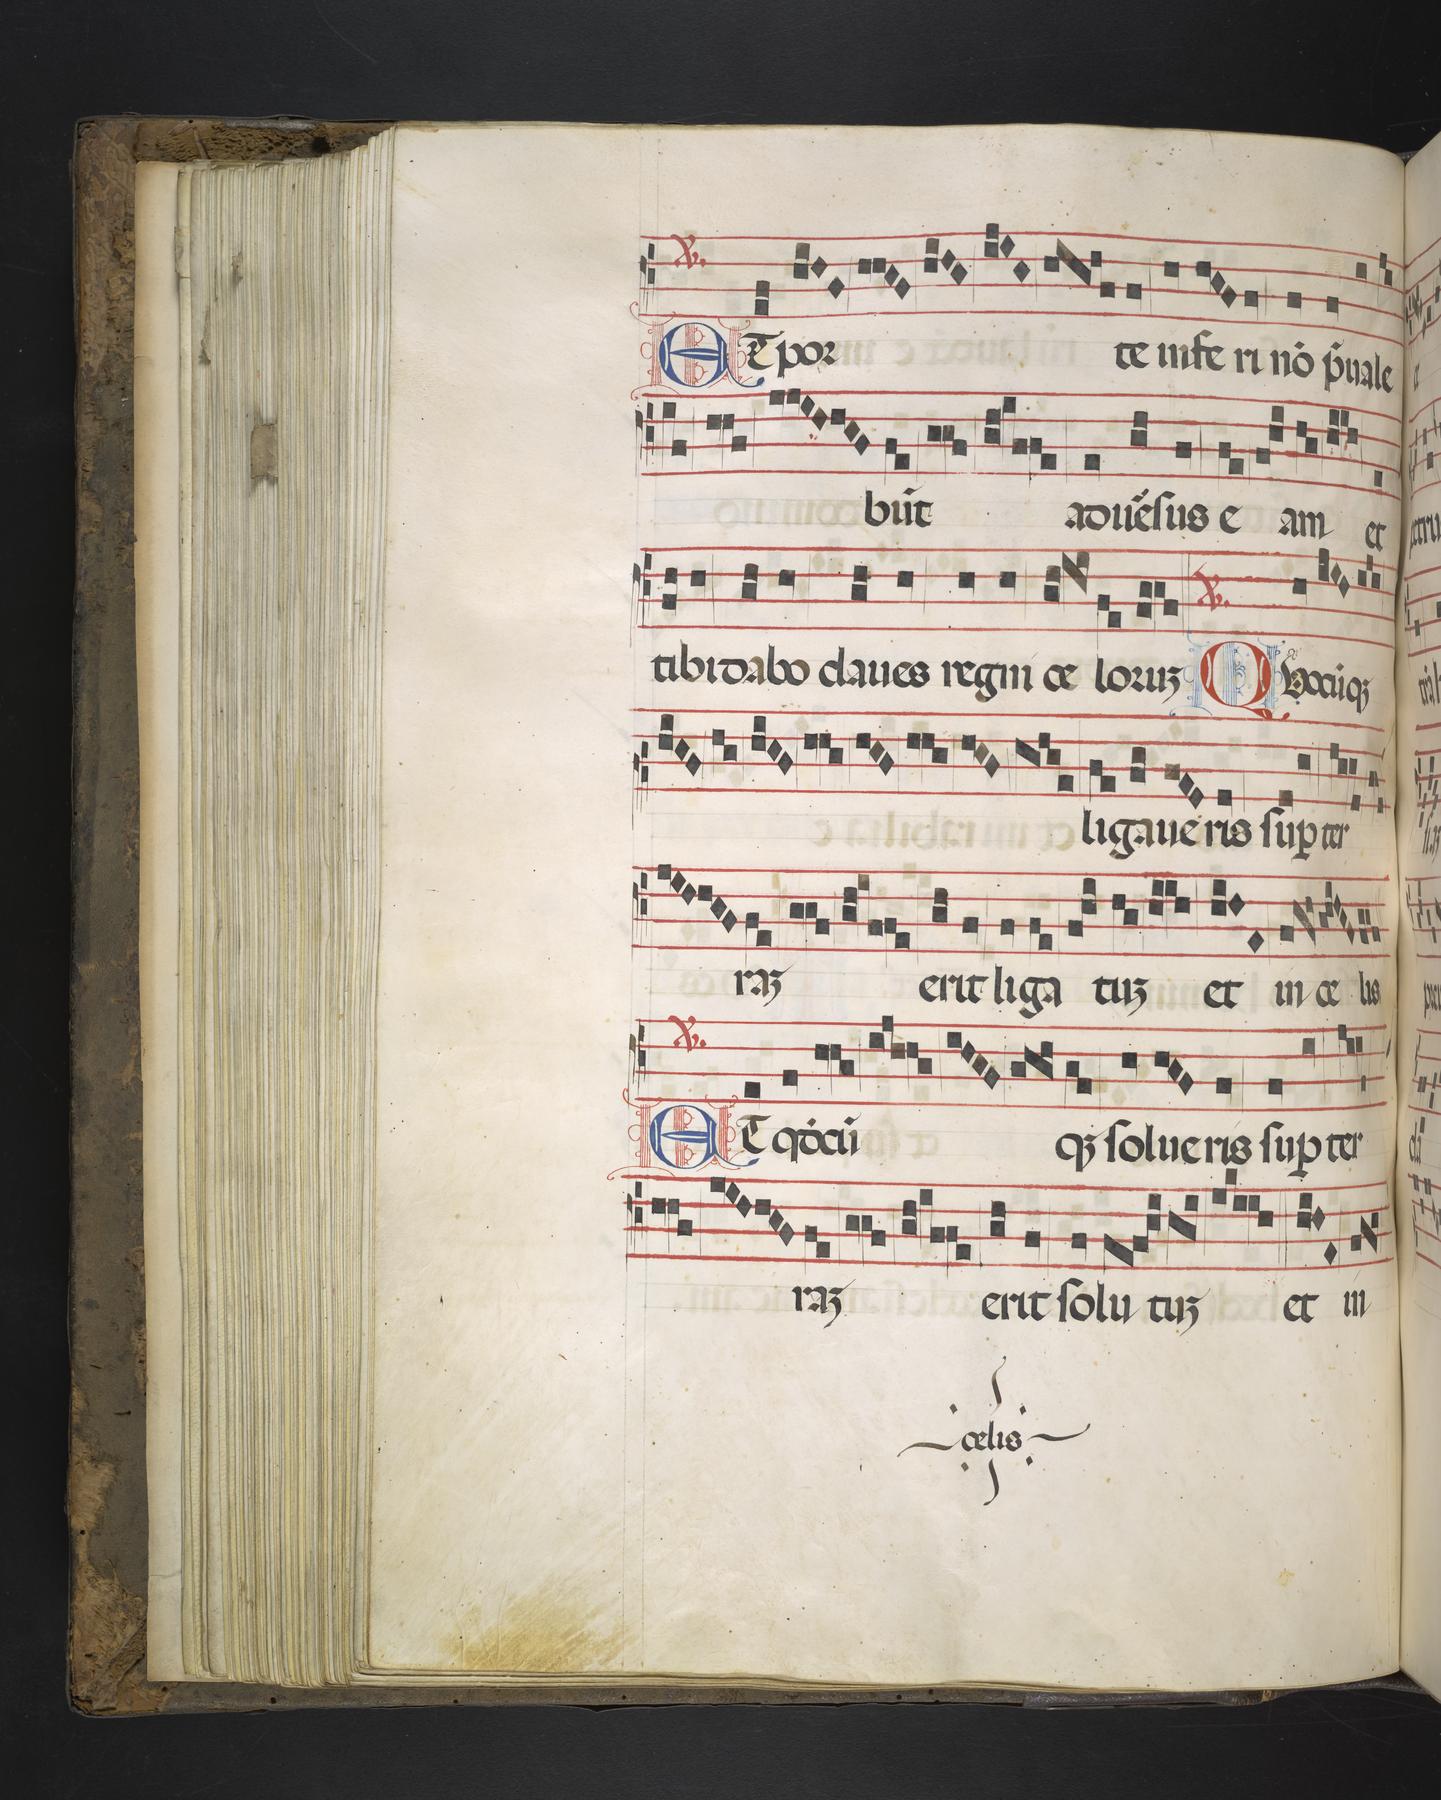 ℣.
ET por te infe ri nō p̄uale
būt aduẽsus e am et
tibi dabo claues regni ce loruꝫ ℣. Quodcūqꝫ
ligaue ris suꝑ ter
raꝫ erit liga tuꝫ et in ce lis
℣.
ET qdcū qꝫ solue ris suꝑ ter
raꝫ erit solu tuꝫ et in
celis